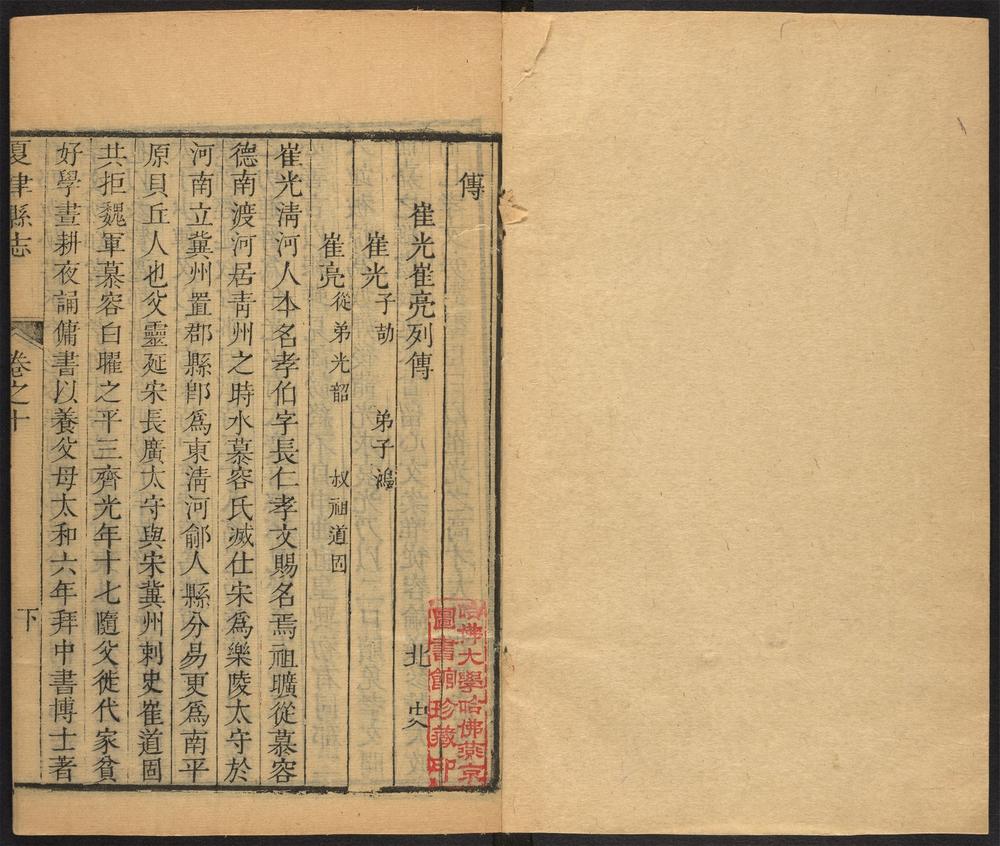 傳
崔光崔亮列傳 北史
崔光 子劼 弟子鴻
崔亮 從弟光韶 叔祖道固
崔光淸河人本名孝伯字長仁孝文賜名焉祖曠從慕容
德南渡河居靑州之時水慕容氏滅仕宋爲樂陵太守於
河南立冀州置郡縣卽爲東淸河鄃人縣分易更爲南平
原貝丘人也父靈延宋長廣太守與宋冀州刺史崔道固
共拒魏軍慕容白曜之平三齊光年十七隨父徙代家貧
好學晝耕夜誦傭書以養父母太和六年拜中書博士著
夏津縣志 卷之十 下
哈佛大學哈佛燕京
圖書館珍藏印